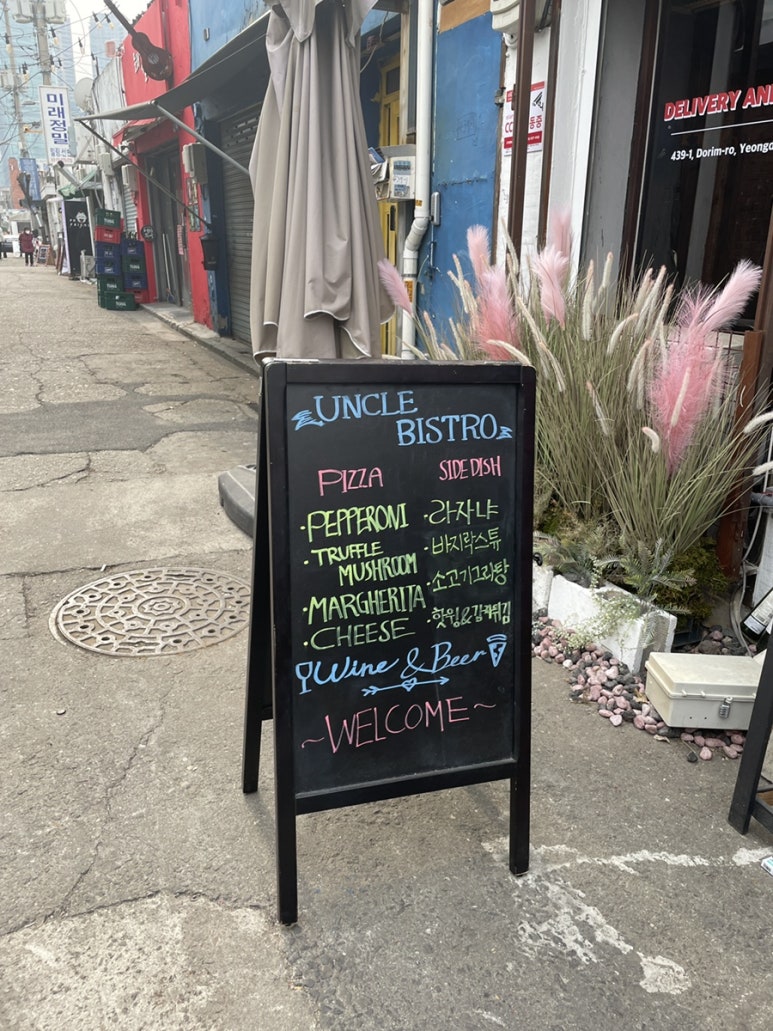 미래정밀
DELIVERY AN
439-1, Dorim-ro, Yeongd
UNCLE
BISTRO
PIZZA
· PEPPERONI
· TRUFFLE
MUSHROOM
· MARGHERITA
· CHEESE
SIDE DISH
· 라자냐
· 바지락스튜
· 소고기그라탕
· 핫윙&감자튀김
Wine & Beer
~WELCOME~